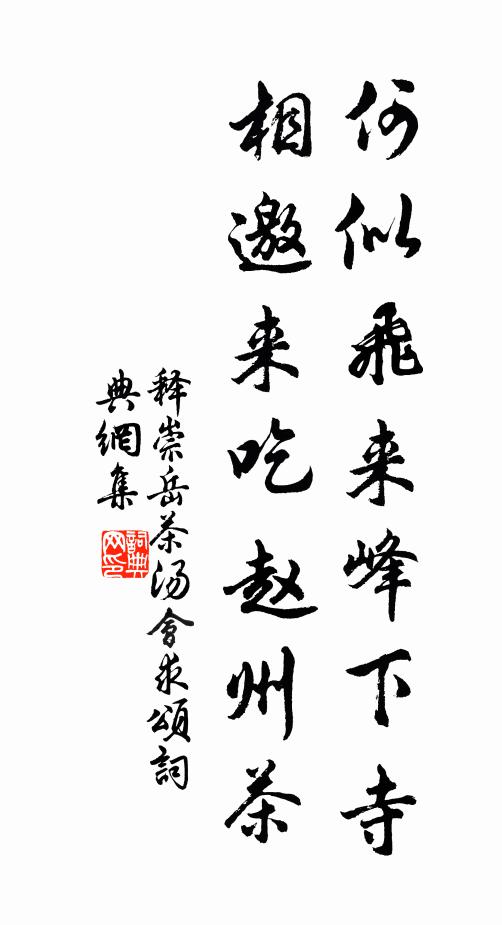 何似飛来峰下寺
相邀来吃赵州茶
释崇岳茶汤會求頌詞
典網集
詞典网印